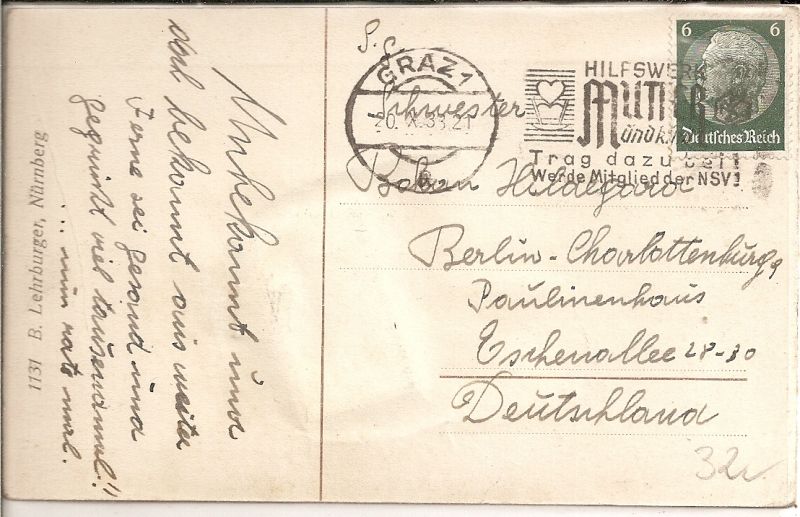 1131 B. Lehrburger, Nürnberg
Unbekannt und
doch bekannt aus weiter
Ferne sei gesand und
gegrüsst viel tausendmal!"
... nun rate mal.
S. g.
Schwester
Boban Hildegard
Berlin-Charlottenburg 9
Paulinenhaus
Eschenallee 28-30
Deutschland
GRAZ 1
20. X. 38. 21
HILFSWERK
Mutter
und K
Trag dazu bei!
Werde Mitglied der NSV!
6 6
Deutsches Reich
32